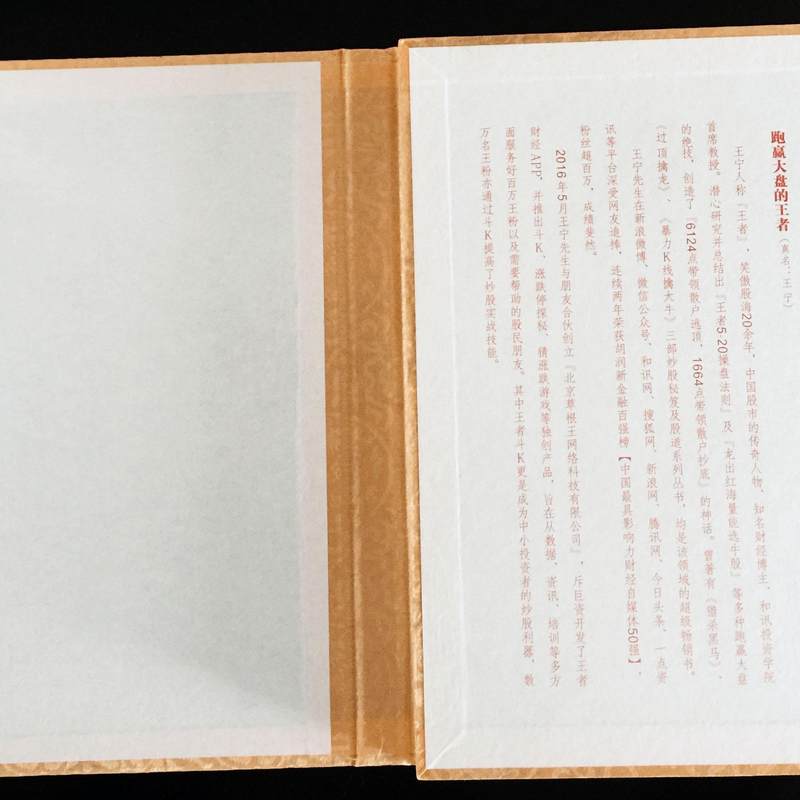 跑赢大盘的王者(真名:王宁)
王宁人称『王者』,笑傲股海20余年,中国股市的传奇人物、知名财经博主、和讯投资学院
首席教授。潜心研究并总结出『王者5·20操盘法则』及『龙出红海量能选牛股』等多种跑赢大盘
的绝技,创造了『6124点带领散户逃顶、1664点带领散户抄底』的神话。曾著有《猎杀黑马》、
《过顶擒龙》、《暴力K线擒大牛》三部炒股秘笈及股道系列丛书,均是该领域的超级畅销书。
王宁先生在新浪微博、微信公众号、和讯网、搜狐网、新浪网、腾讯网、今日头条、一点资
讯等平台深受网友追捧,连续两年荣获胡润新金融百强榜【中国最具影响力财经自媒体50强】,
粉丝超百万,成绩斐然。
2016年5月王宁先生与朋友合伙创立『北京草根王网络科技有限公司』,斥巨资开发了王者
财经APP,并推出斗K、涨跌停探秘、猜涨跌游戏等独创产品,旨在从数据、资讯、培训等多方
面服务好百万王粉以及需要帮助的股民朋友。其中王者斗K更是成为中小投资者的炒股利器,数
万名王粉亦通过斗K提高了炒股实战技能。